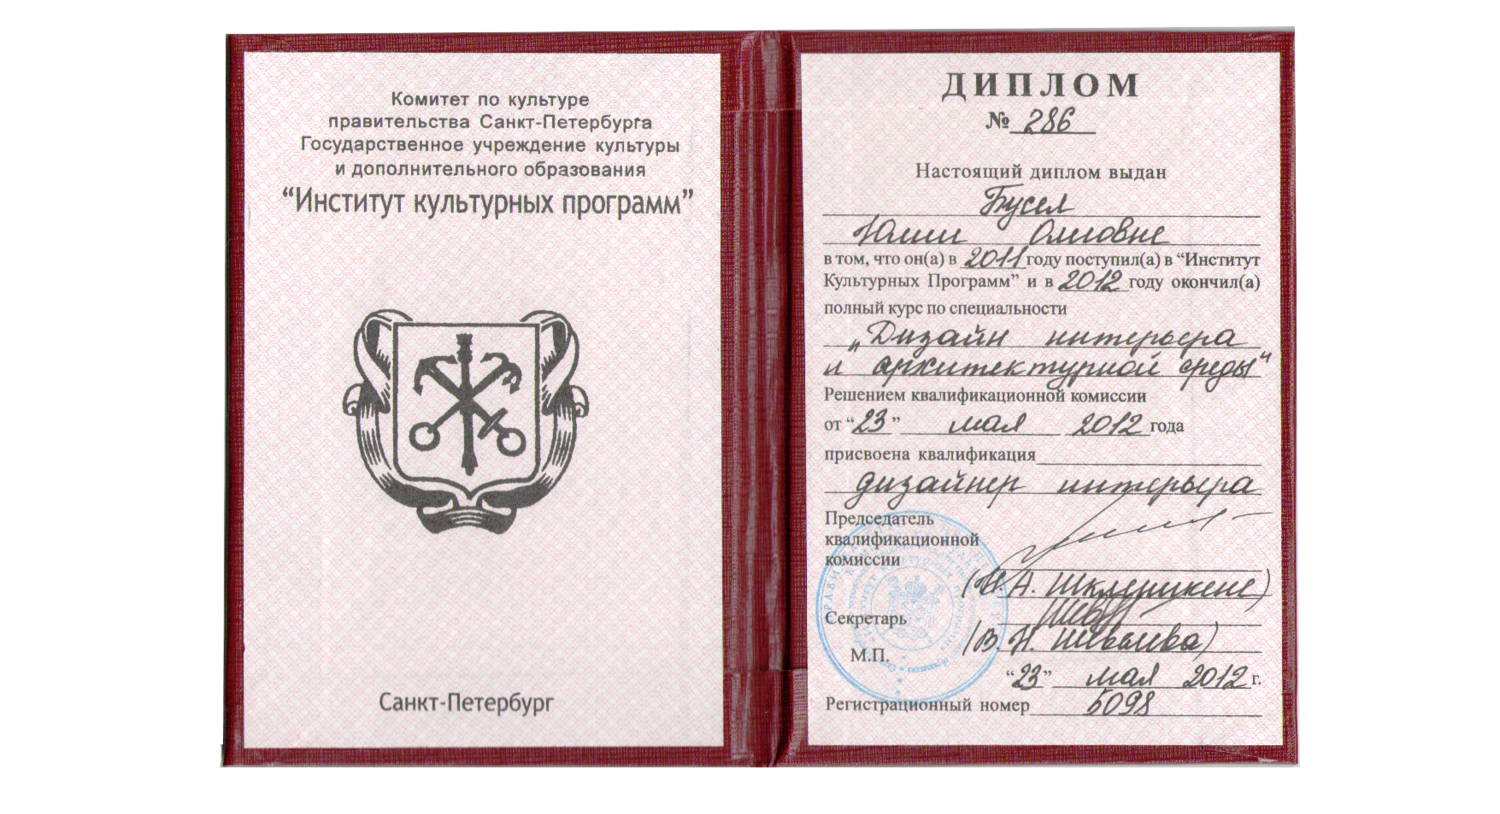 Комитет по культуре
правительства Санкт-Петербурга
Государственное учреждение культуры
и дополнительного образования
“Институт культурных программ”
Санкт-Петербург
ДИПЛОМ
№ 286
Настоящий диплом выдан
Бусел
Юлии Олеговне
в том, что он(а) в 2011 году поступил(а) в “Институт
Культурных Программ” и в 2012 году окончил(а)
полный курс по специальности
„Дизайн интерьера
и архитектурной среды“
Решением квалификационной комиссии
от “23” мая 2012 года
присвоена квалификация
дизайнер интерьера
Председатель
квалификационной
комиссии
(Н.А. )
Секретарь
(В.Н. )
М.П.
“23” мая 2012 г.
Регистрационный номер 5098